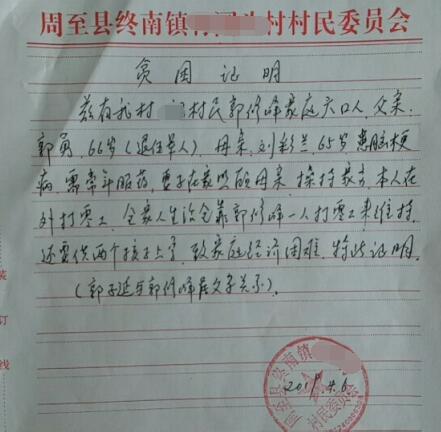 周至县终南镇 村村民委员会
贫困证明
兹有我村 村民郭修峰家庭六口人,父亲
郭勇,66岁(退伍军人)母亲,刘彩兰65岁患脑梗
病,需常年服药,妻子在家照顾母亲操持家务,本人在
外打零工,全家人生活全靠郭修峰一人打零工来维持,
还要供两个孩子上学,致家庭经济困难,特此证明.
(郭子延与郭修峰居父子关系).
周至县终南镇
村民委员会
装
订
线